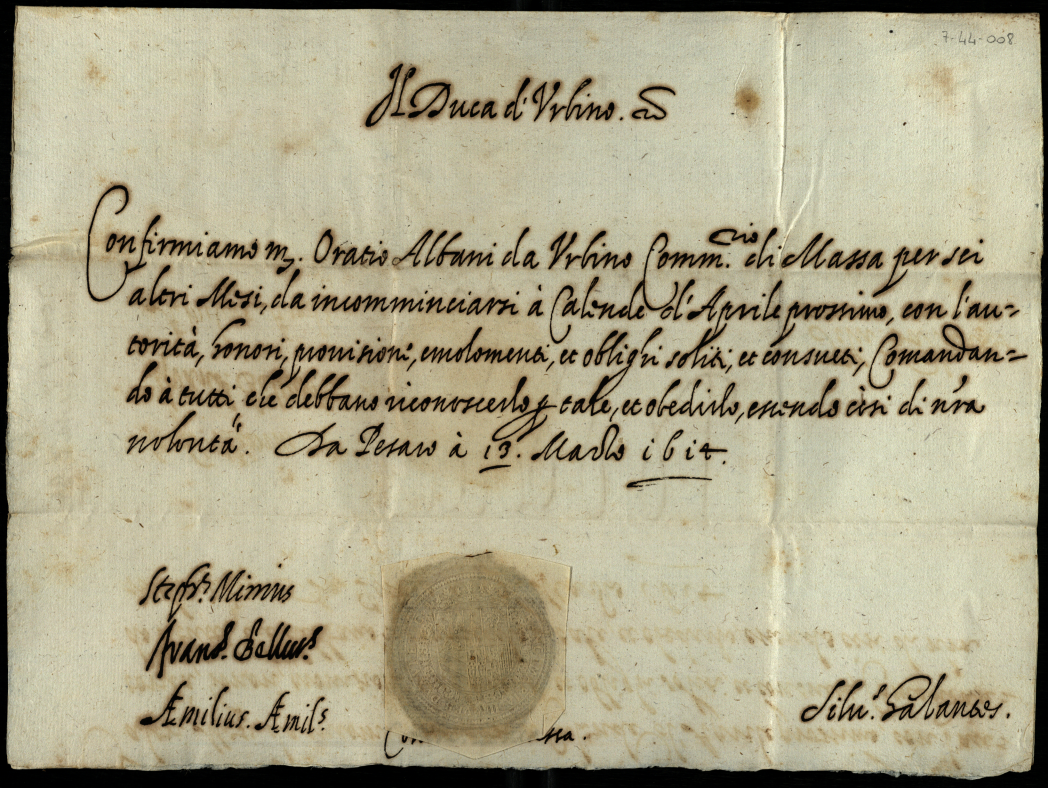 7-44-008
Il Duca d'Urbino.
Confirmiamo m. Oratio Albani da Urbino Comm.rio di Massa per sei
altri Mesi, da incomminciarsi à Calende d'Aprile prossimo, con l'au=
torità, honori, provisione, emolomenti, et oblighi soliti, et consueti, Comandan=
do à tutti che debbano riconoscerlo p tale, et obedirlo, essendo così di nra
volontà. Da Pesaro à 13. Marzo 1614.
Mimius
Æmilius. Æmil.s
Silv.s Galantes.